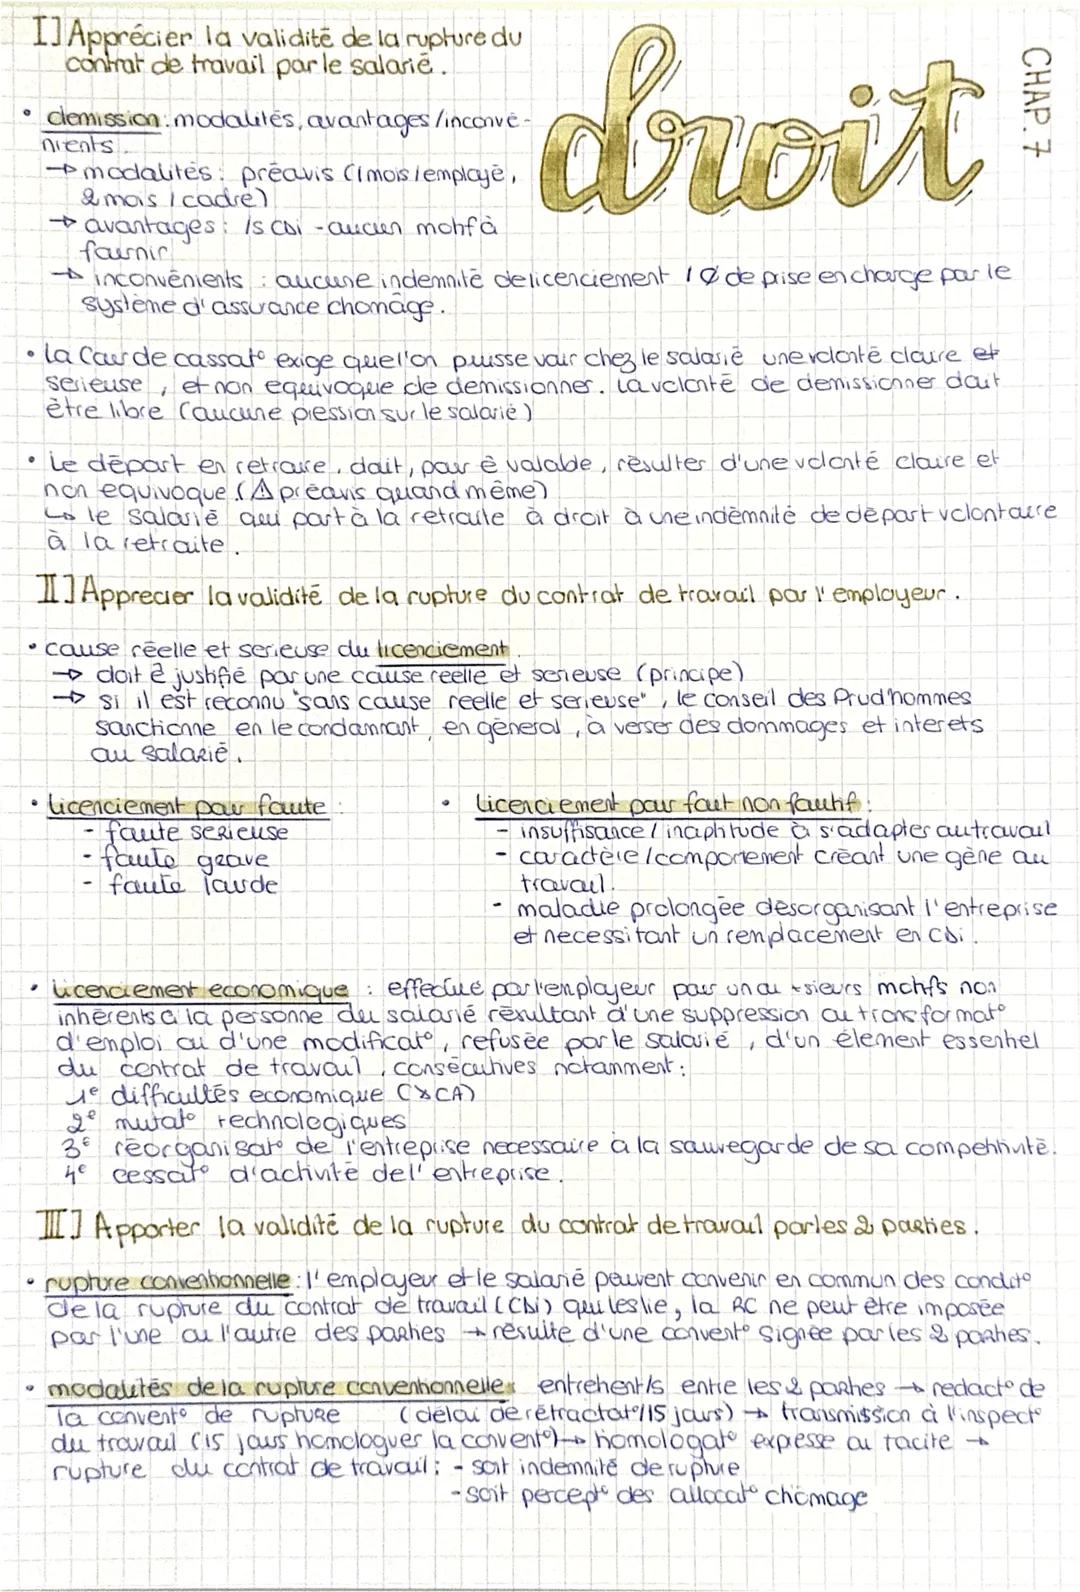 I] Apprécier la validité de la rupture du
contrat de travail par le salarié.
droit
CHAP. 7
• demission : modalités, avantages / inconvé-
nients.
→ modalités : préavis (1 mois / employé,
2 mois / cadre)
→ avantages : /s CDI - aucun motif à
fournir
→ inconvénients : aucune indemnité de licenciement / Ø de prise en charge par le
système d'assurance chomâge.
• la Cour de cassat° exige que l'on puisse voir chez le salarié une volonté claire et
serieuse, et non equivoque de demissionner. La volonté de demissionner doit
être libre (aucune pression sur le salarié)
• Le départ en retraite, doit, pour ê valable, résulter d'une volonté claire et
non equivoque (⚠ préavis quand même)
↳ le salarié qui part à la retraite à droit à une indémnité de départ volontaire
à la retraite.
II] Apprecier la validité de la rupture du contrat de travail par l'employeur.
• cause réelle et serieuse du licenciement.
→ doit ê justifié par une cause reelle et serieuse (principe)
→ si il est reconnu "sans cause reelle et serieuse", le conseil des Prud'hommes
sanctionne en le condamnant, en général, à verser des dommages et interets
au salarié.
• Licenciement pour faute :
- faute serieuse
- faute grave
- faute lourde
• Licenciement pour fait non fautif :
- insuffisance / inaptitude à s'adapter au travail
- caractère / comportement créant une gène au
travail.
- maladie prolongée désorganisant l'entreprise
et necessitant un remplacement en CDI.
• Licenciement economique : effectué par l'employeur pour un ou +sieurs motifs non
inhérents à la personne du salarié résultant d'une suppression ou transformat°
d'emploi ou d'une modificat°, refusée par le salarié, d'un élement essentiel
du contrat de travail, consécutives notamment :
1e difficultés economique (↘CA)
2e mutat° technologiques
3e réorganisat° de l'entreprise necessaire à la sauvegarde de sa competitivité.
4e cessat° d'activité de l'entreprise.
III] Apporter la validité de la rupture du contrat de travail par les 2 parties.
• rupture conventionnelle : l'employeur et le salarié peuvent convenir en commun des condit°
de la rupture du contrat de travail (CDI) qui les lie, la RC ne peut être imposée
par l'une ou l'autre des parties → résulte d'une convent° signée par les 2 parties.
• modalités de la rupture conventionnelle : entretient/s entre les 2 parties → redact° de
la convent° de rupture (délai de rétractat°/15 jours) → transmission à l'inspect°
du travail (15 jours homologuer la convent°) → homologat° expesse ou tacite →
rupture du contrat de travail : - soit indemnité de rupture
- soit percept° des allocat° chômage